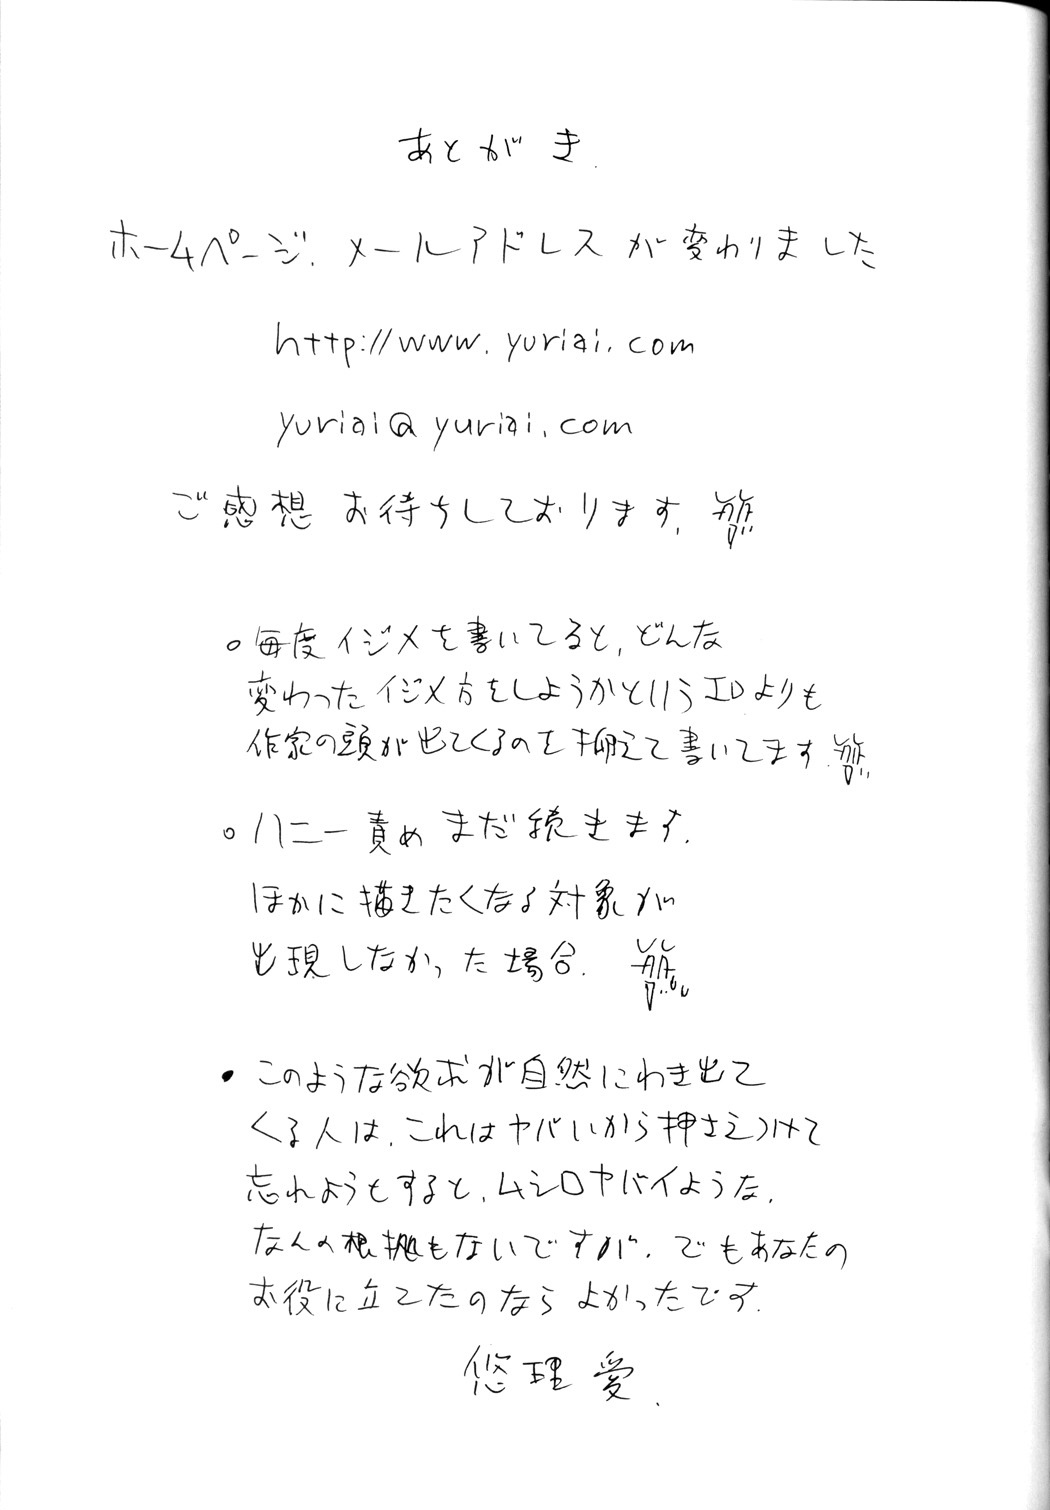 あとがき.
ホームページ.メールアドレスが変わりました
http://www.yuriai.com
yuriai@yuriai.com
ご感想お待ちしております.
○毎度イジメを書いてると,どんな
変わったイジメ方をしようかというエロよりも
作家の頭が出てくるのを抑えて書いてます.
○ハニー責めまだ続きます.
ほかに描きたくなる対象が
出現しなかった場合.
・このような欲求が自然にわき出て
くる人は,これはヤバいから押さえつけて
忘れようとすると,ムシロヤバイような,
なんの根拠もないですが.でもあなたの
お役に立てたのならよかったです.
悠理愛.